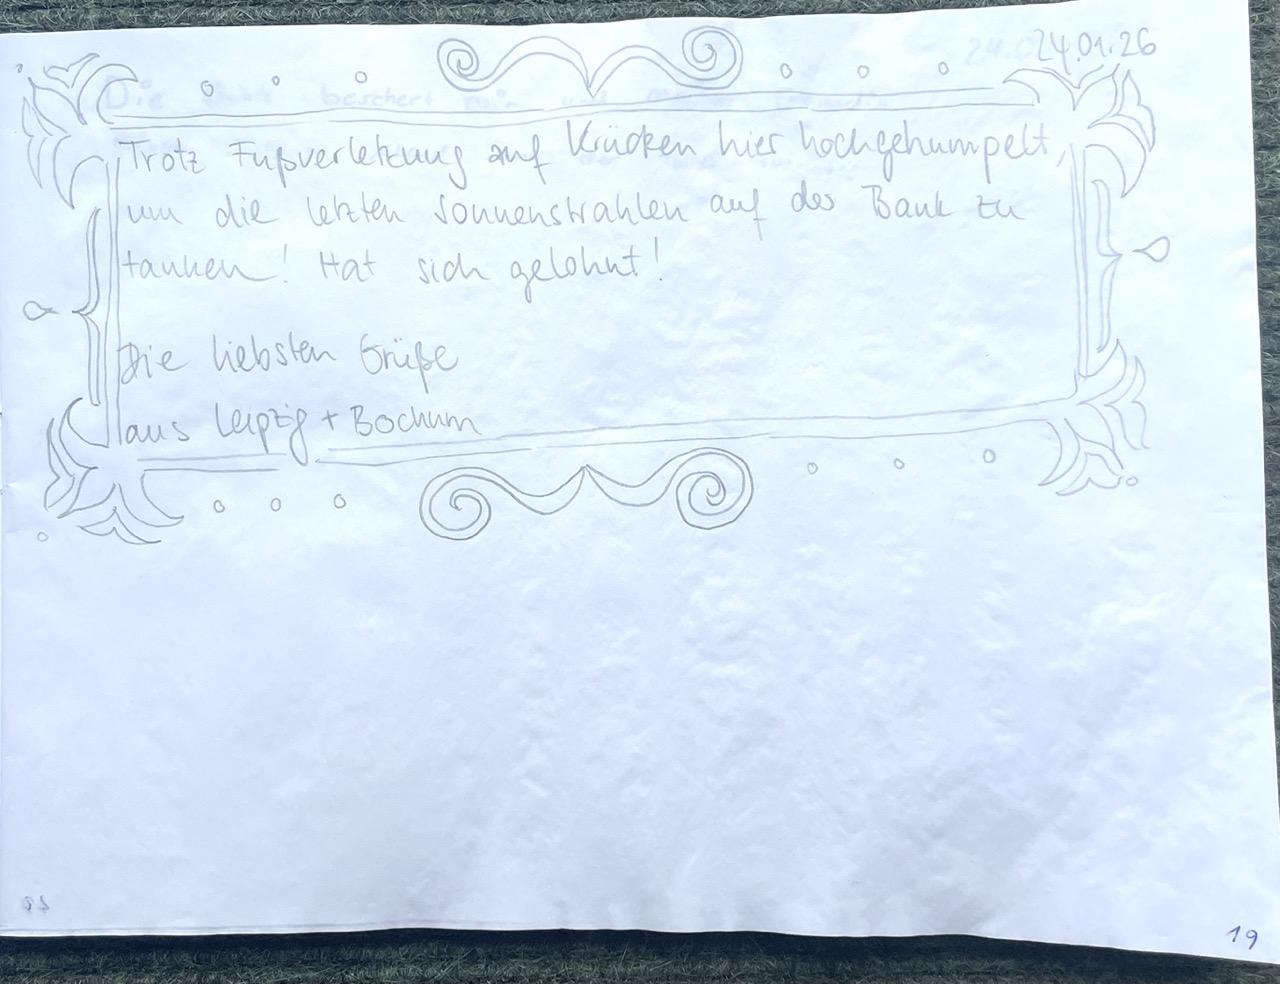 24.01.26
Trotz Fußverletzung auf Krücken hier hochgehumpelt,
um die letzten Sonnenstrahlen auf der Bank zu
tanken! Hat sich gelohnt!
Die liebsten Grüße
aus Leipzig + Bochum
19